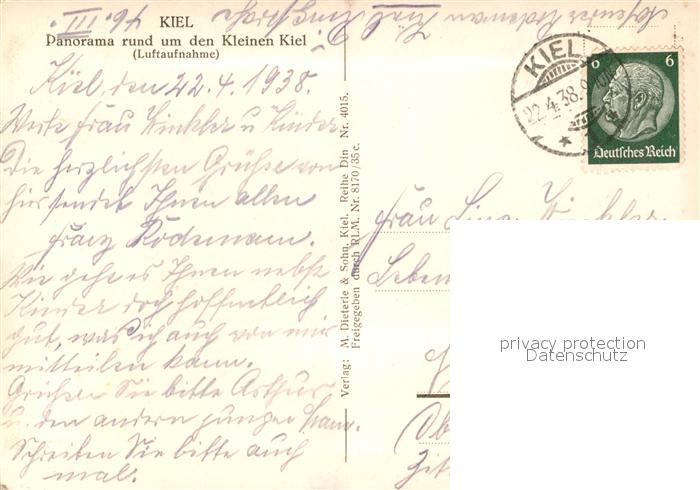 KIEL
Panorama rund um den Kleinen Kiel
(Luftaufnahme)
Kiel, den 22.4.1938.
Werte Frau Winkler u. Kinder
Die herzlichsten Grüße von
hier sendet Ihnen allen
Franz Rodemann.
Wie geht es Ihnen nebst
Kinder doch hoffentlich
gut, was ich auch von mir
mitteilen kann.
Grüßen Sie bitte Arthur
u. den andern jungen Mann.
Schreiben Sie bitte auch
mal.
Verlag: M. Dieterle & Sohn, Kiel. Reihe Din Nr. 4015.
Freigegeben durch RLM. Nr. 8170/35c.
Absender Rodemann Kiel
KIEL
22.4.38.9
6 6
Deutsches Reich
Frau Winkler
privacy protection
Datenschutz